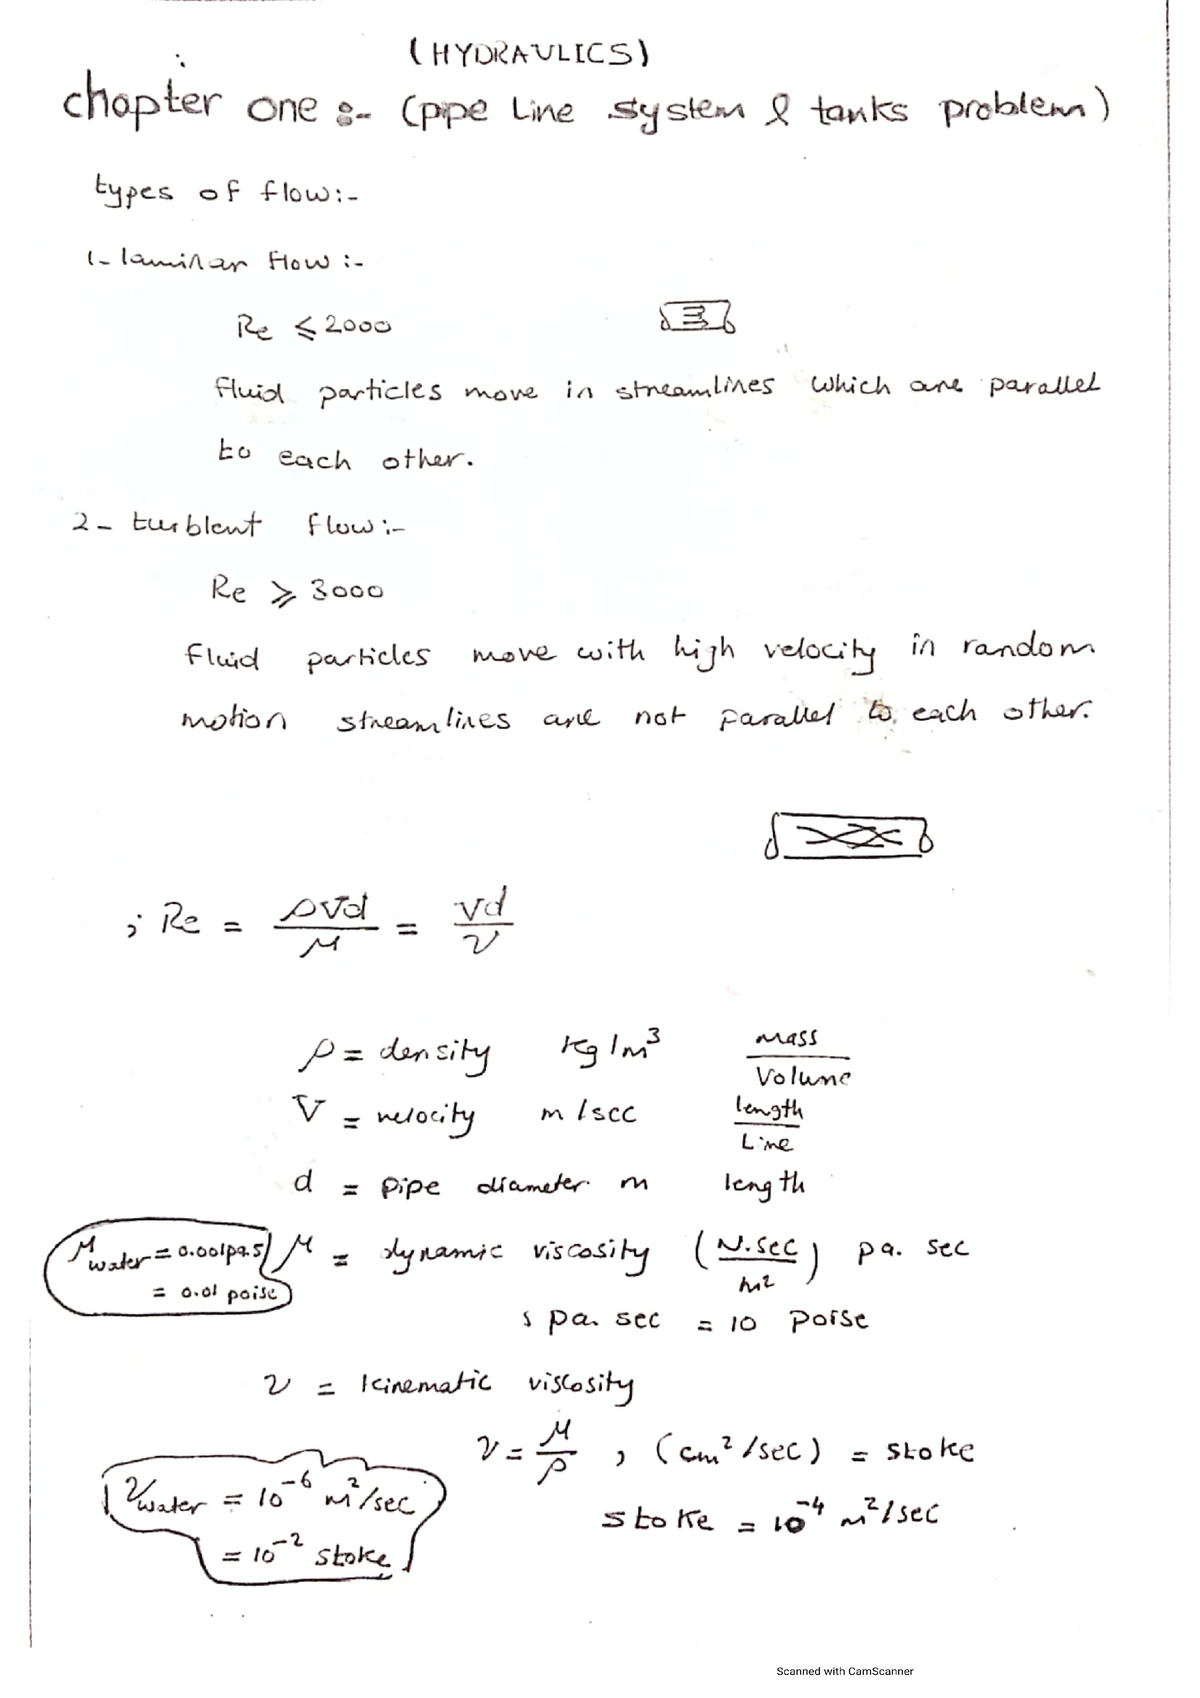 (HYDRAULICS)
chapter one :- (pipe Line system & tanks problem)
types of flow:-
1- laminar flow :-
Re ⩽ 2000
fluid particles move in streamlines which are parallel
to each other.
2- turblent flow:-
Re ⩾ 3000
fluid particles move with high velocity in random
motion streamlines are not parallel to each other.
; Re = ρVd/μ = Vd/ν
ρ = density kg/m³ mass/Volume
V = velocity m/sec length/Line
d = pipe diameter m length
μwater = 0.001pa.s μ = dynamic viscosity (N.sec/m²) pa. sec
= 0.01 poise
pa. sec = 10 poise
ν = kinematic viscosity
ν = μ/ρ , (cm²/sec) = stoke
νwater = 10⁻⁶ m²/sec
stoke = 10⁻⁴ m²/sec
= 10⁻² stoke
Scanned with CamScanner